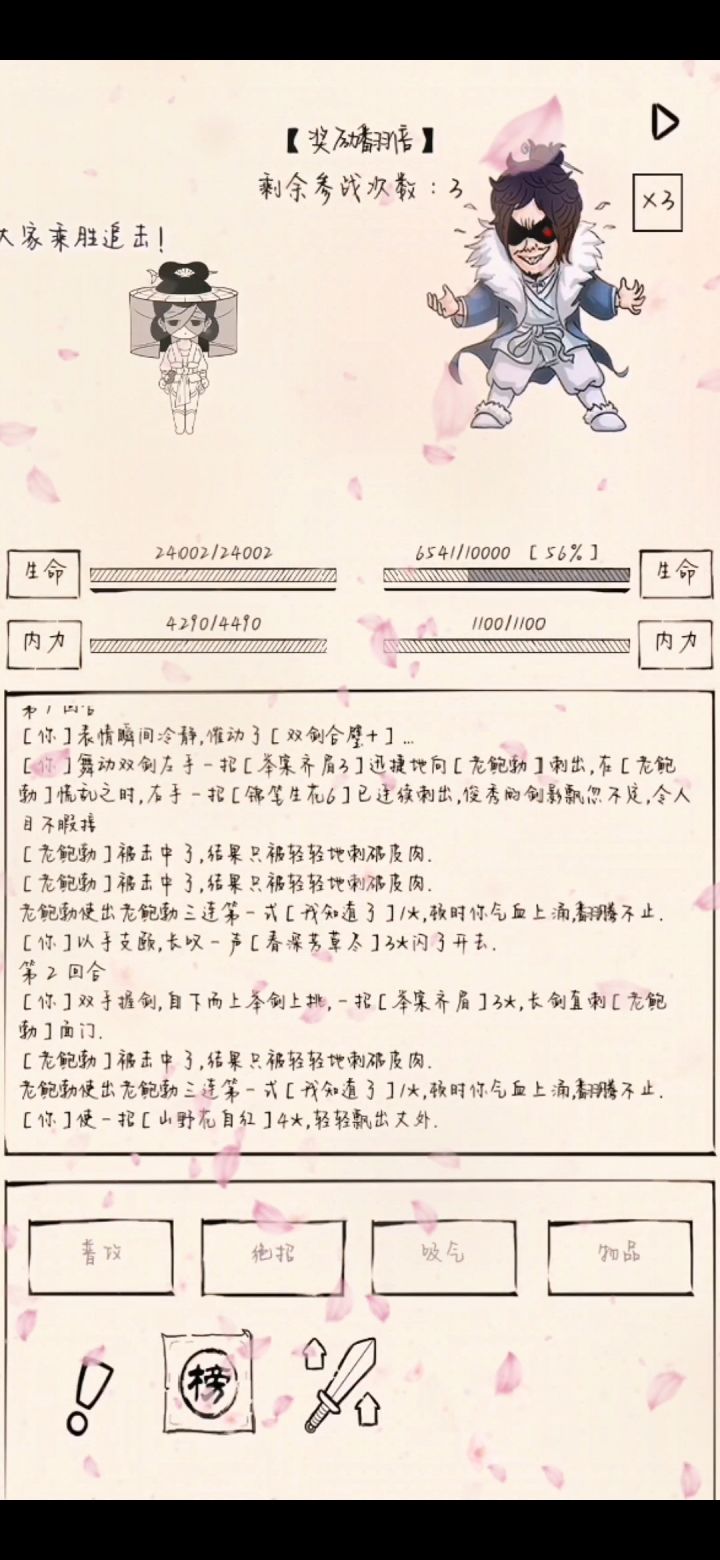 【奖励翻倍】
剩余参战次数：3
×3
大家乘胜追击！
生命
24002/24002
6541/10000 [56%]
生命
内力
4290/4490
1100/1100
内力
第1回合
[你]表情瞬间冷静,催动了[双剑合璧+]...
[你]舞动双剑左手一招[举案齐眉3]迅捷地向[老鲍勃]刺出,在[老鲍
勃]慌乱之时,右手一招[锦笔生花6]已连续刺出,俊秀的剑影飘忽不定,令人
目不暇接
[老鲍勃]被击中了,结果只被轻轻地刺破皮肉.
[老鲍勃]被击中了,结果只被轻轻地刺破皮肉.
老鲍勃使出老鲍勃三连第一式[我知道了]1*,顿时你气血上涌,翻腾不止.
[你]以手支颐,长叹一声[春深芳草尽]3*闪了开去.
第2回合
[你]双手握剑,自下而上举剑上挑,一招[举案齐眉]3*,长剑直刺[老鲍
勃]面门.
[老鲍勃]被击中了,结果只被轻轻地刺破皮肉.
老鲍勃使出老鲍勃三连第一式[我知道了]1*,顿时你气血上涌,翻腾不止.
[你]使一招[山野花自红]4*,轻轻飘出丈外.
普攻
绝招
吸气
物品
榜